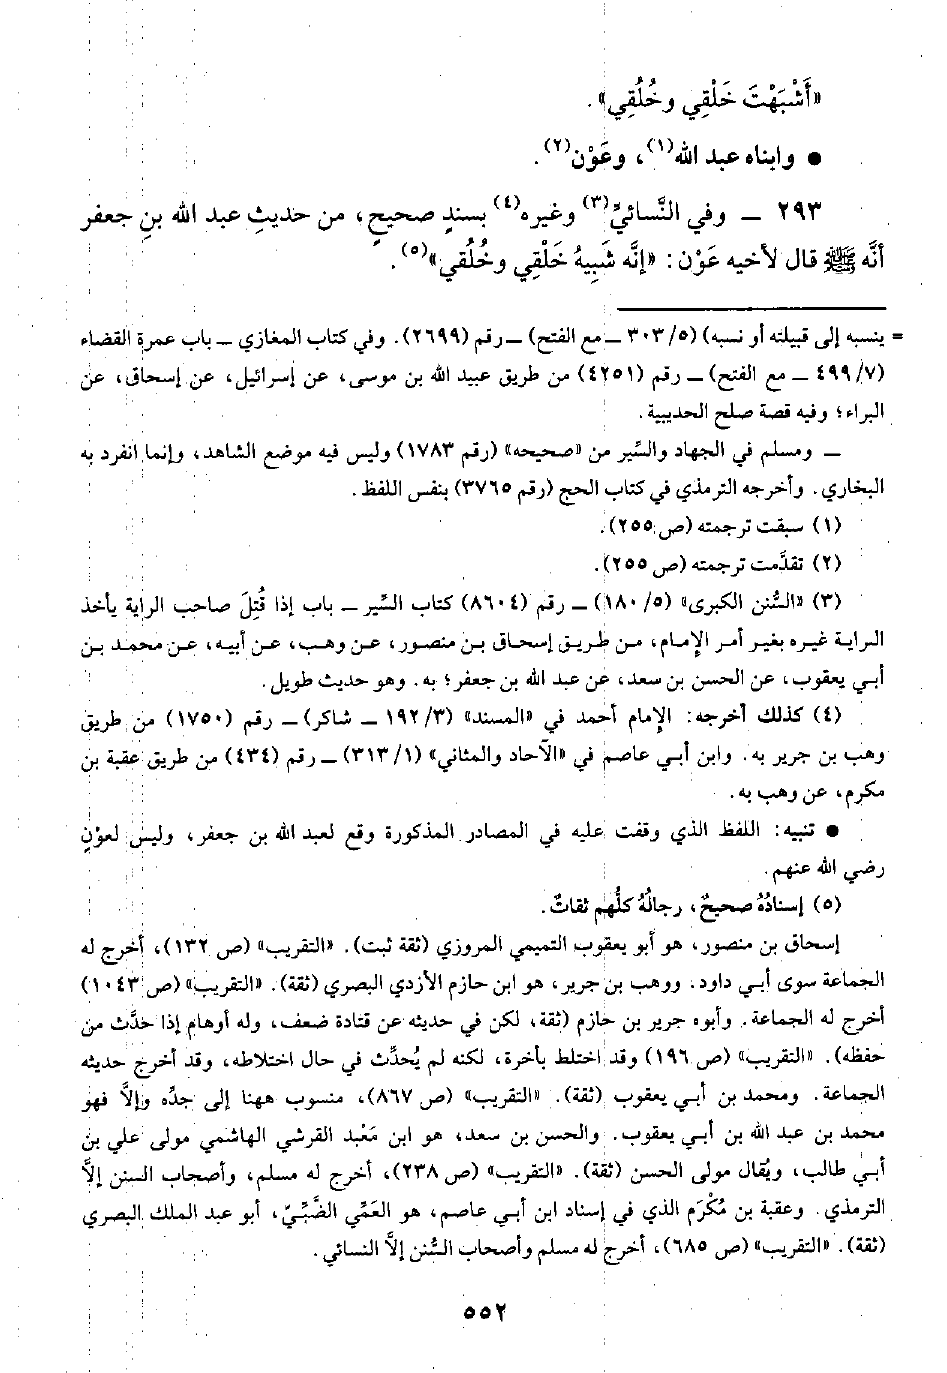 «أَشْبَهْتَ خَلْقِي وخُلُقِي».
● وابناه عبد الله(١)، وعَوْن(٢).
٢٩٣ ــ وفي النَّسائيِّ(٣) وغيره(٤) بسندٍ صحيحٍ، من حديثِ عبد الله بنِ جعفر
أنَّه ﷺ قال لأخيه عَوْن: «إنَّه شَبِيهُ خَلْقِي وخُلُقي»(٥).
= ينسبه إلى قبيلته أو نسبه) (٣٠٣/٥ ــ مع الفتح) ــ رقم (٢٦٩٩). وفي كتاب المغازي ــ باب عمرة القضاء
(٤٩٩/٧ ــ مع الفتح) ــ رقم (٤٢٥١) من طريق عبيد الله بن موسى، عن إسرائيل، عن إسحاق، عن
البراء؛ وفيه قصة صلح الحديبية.
ــ ومسلم في الجهاد والسِّير من «صحيحه» (رقم ١٧٨٣) وليس فيه موضع الشاهد، وإنما انفرد به
البخاري. وأخرجه الترمذي في كتاب الحج (رقم ٣٧٦٥) بنفس اللفظ.
(١) سبقت ترجمته (ص ٢٥٥).
(٢) تقدَّمت ترجمته (ص ٢٥٥).
(٣) «السُّنن الكبرى» (١٨٠/٥) ــ رقم (٨٦٠٤) كتاب السِّير ــ باب إذا قُتِلَ صاحب الراية يأخذ
الراية غيره بغير أمر الإمام، من طريق إسحاق بن منصور، عن وهب، عن أبيه، عن محمد بن
أبي يعقوب، عن الحسن بن سعد، عن عبد الله بن جعفر؛ به. وهو حديث طويل.
(٤) كذلك أخرجه: الإمام أحمد في «المسند» (١٩٢/٣ ــ شاكر) ــ رقم (١٧٥٠) من طريق
وهب بن جرير به. وابن أبي عاصم في «الآحاد والمثاني» (٣١٣/١) ــ رقم (٤٣٤) من طريق عقبة بن
مكرم، عن وهب به.
● تنبيه: اللفظ الذي وقفت عليه في المصادر المذكورة وقع لعبد الله بن جعفر، وليس لعوْنٍ
رضي الله عنهم.
(٥) إسنادُهُ صحيحٌ، رجالُهُ كلُّهم ثقاتٌ.
إسحاق بن منصور، هو أبو يعقوب التميمي المروزي (ثقة ثبت). «التقريب» (ص ١٣٢)، أخرج له
الجماعة سوى أبي داود. ووهب بن جرير، هو ابن حازم الأزدي البصري (ثقة). «التقريب» (ص ١٠٤٣)
أخرج له الجماعة. وأبوه جرير بن حازم (ثقة، لكن في حديثه عن قتادة ضعف، وله أوهام إذا حدَّث من
حفظه). «التقريب» (ص ١٩٦) وقد اختلط بأخرة، لكنه لم يُحدِّث في حال اختلاطه، وقد أخرج حديثه
الجماعة. ومحمد بن أبي يعقوب (ثقة). «التقريب» (ص ٨٦٧)، منسوب ههنا إلى جدِّه وإلاَّ فهو
محمد بن عبد الله بن أبي يعقوب. والحسن بن سعد، هو ابن مَعْبد القرشي الهاشمي مولى علي بن
أبي طالب، ويُقال مولى الحسن (ثقة). «التقريب» (ص ٢٣٨)، أخرج له مسلم، وأصحاب السنن إلاَّ
الترمذي. وعقبة بن مُكْرَم الذي في إسناد ابن أبي عاصم، هو العَمِّي الضَّبِّيّ، أبو عبد الملك البصري
(ثقة). «التقريب» (ص ٦٨٥)، أخرج له مسلم وأصحاب السُّنن إلاَّ النسائي.
٥٥٢